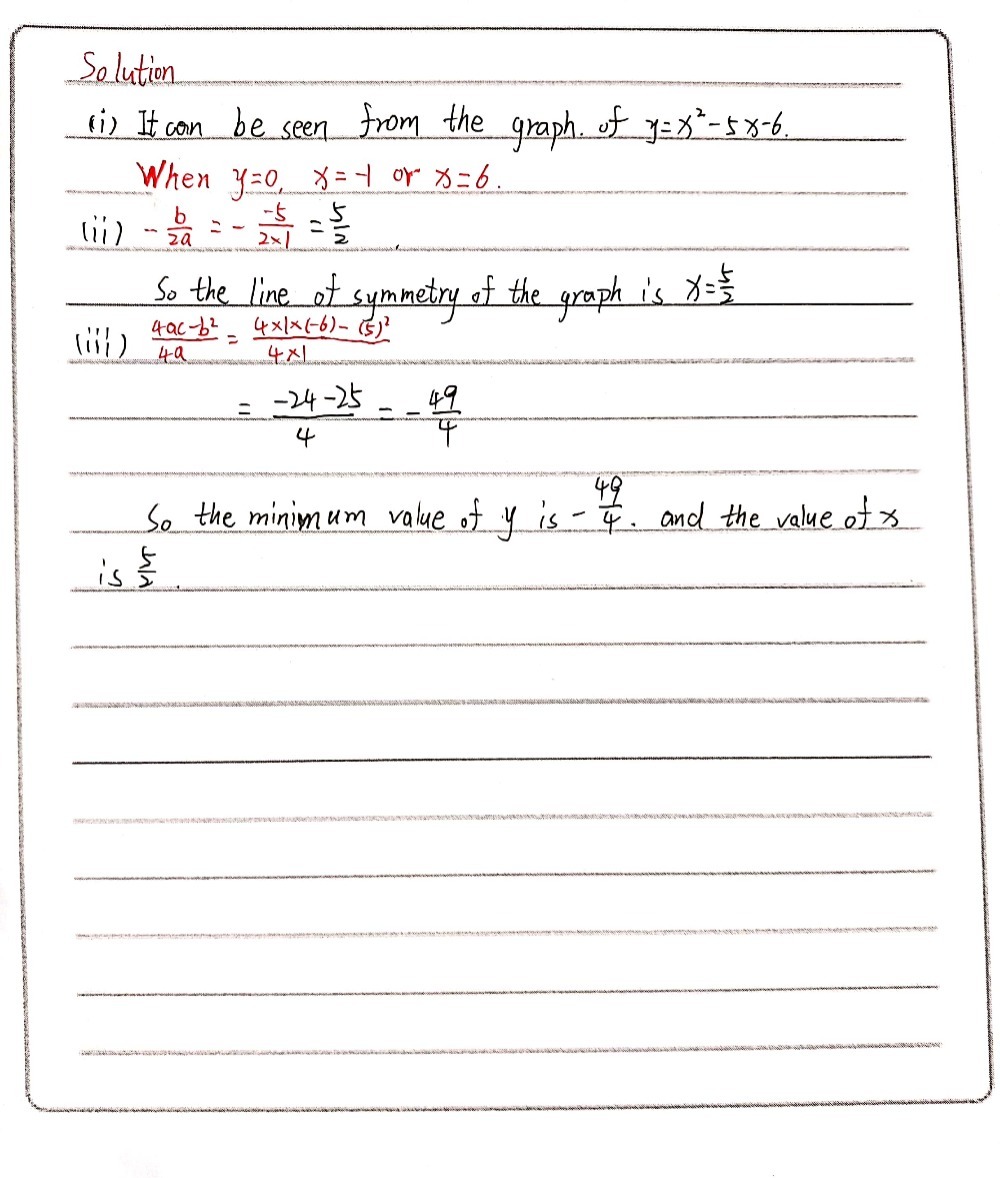 Solution
(i) It can be seen from the graph. of y=x²-5x-6.
When y=0, x=-1 or x=6.
(ii) -b/2a = - -5/2×1 = 5/2
So the line of symmetry of the graph is x=5/2
(iii) 4ac-b²/4a = 4×1×(-6)-(5)²/4×1
= -24-25/4 = -49/4
So the minimum value of y is -49/4. and the value of x
is 5/2.